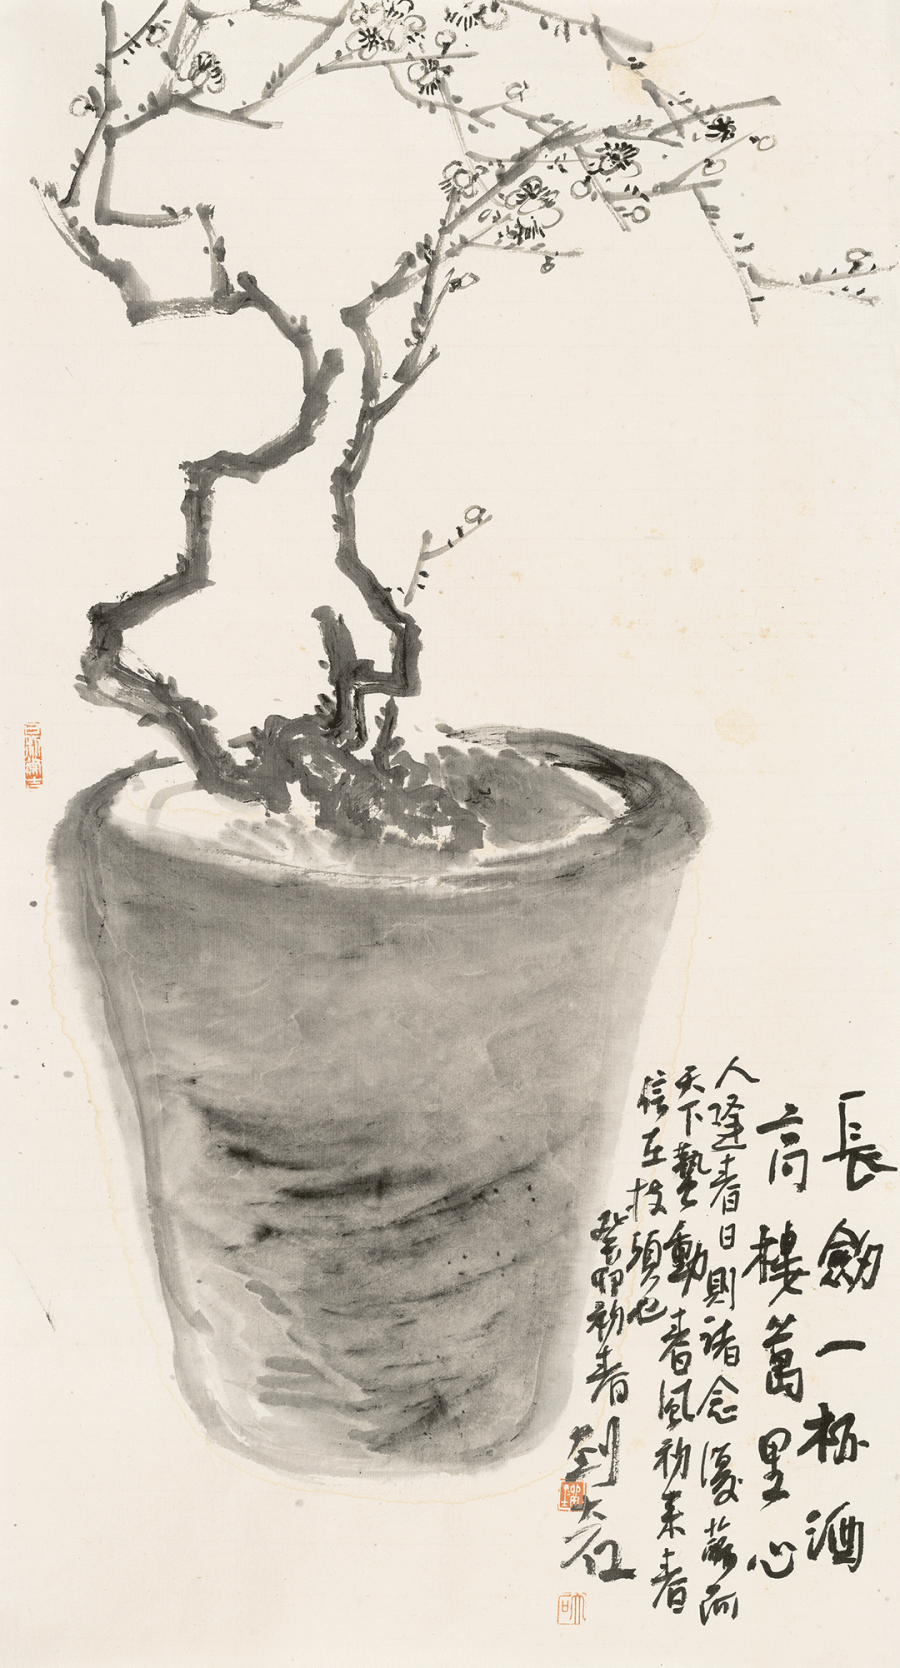 長劍一杯酒
高樓萬里心
人逢春日則諸念復蘇而
天下蟄動春風初來春
信在枝頭也
癸卯初春 劉大